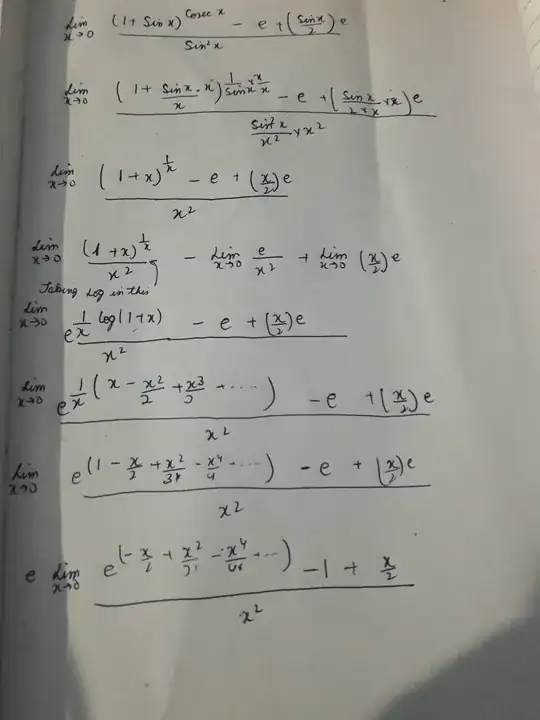 lim x→0 ((1 + Sin x)^(Cosec x) − e + (Sin x/2) e) / Sin² x
lim x→0 ((1 + Sin x/x · x)^(1/Sin x × x/x) − e + (Sin x/(2 × x) × x) e) / (Sin² x/x² × x²)
lim x→0 ((1 + x)^(1/x) − e + (x/2) e) / x²
lim x→0 (1 + x)^(1/x) / x² − lim x→0 e/x² + lim x→0 (x/2) e
Taking Log in this
lim x→0 (e^(1/x log(1+x)) − e + (x/2) e) / x²
lim x→0 (e^(1/x (x − x²/2 + x³/3 + ....)) − e + (x/2) e) / x²
lim x→0 (e^(1 − x/2 + x²/3 − x⁴/4 ....) − e + (x/2) e) / x²
e lim x→0 (e^(− x/2 + x²/ − x⁴/ + ...) − 1 + x/2) / x²